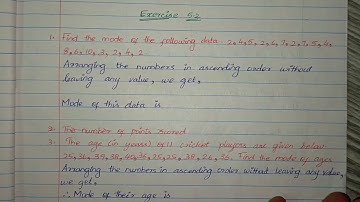 Exercise 5.2
1. Find the mode of the following data. 2,4,5,2,6,7,2,7,5,4,
8,6,10,3,2,4,2
Arranging the numbers in ascending order without
leaving any value, we get,
Mode of this data is
2. The number of points scored
2. The age (in years) of 11 cricket players are given below
25,36,39,38,40,36,25,25,38,26,36. Find the mode of ages
Arranging the numbers in ascending order without leaving any value,
we get,
∴ Mode of their age is